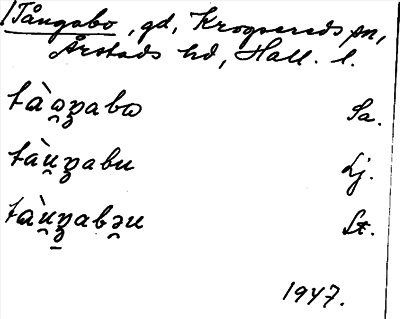 Tångabo, gd, Krogsereds sn,
Årstads hd, Hall. l.
tàꞷ̯ŋabꞷ Sa.
tàu̯ŋabu Lj.
tàu̯ŋabə̯u St.
1947.